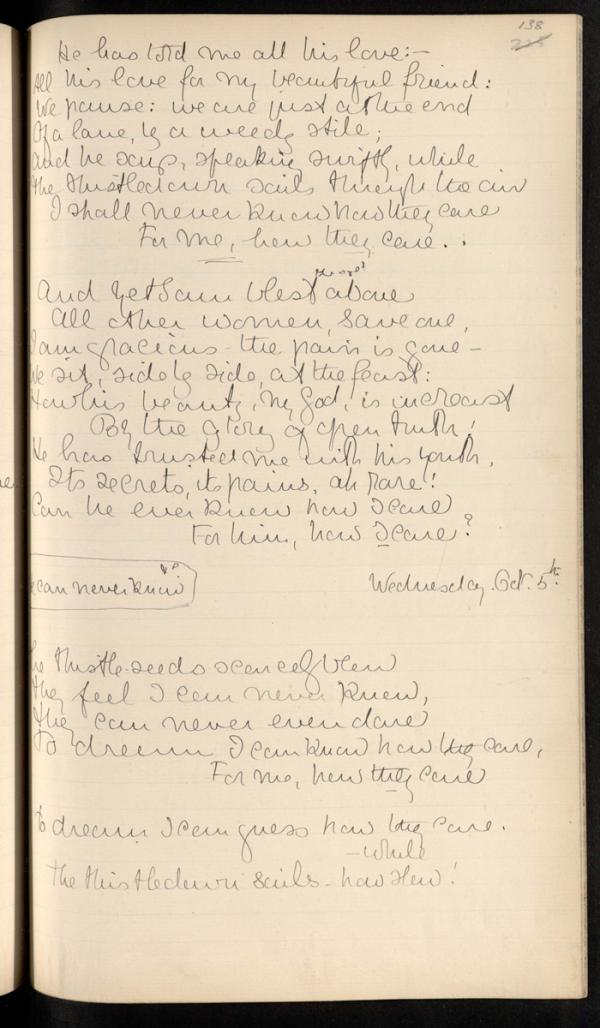 138
He has told me all his love:—
All his love for my beautiful friend:
We pause: we are just at the end
Of a lane, by a weedy stile;
And he says, speaking swiftly, while
The thistledown sails through the air
I shall never know how they care
For me, how they care . .
And yet I am blest above
All other women, save one,
I am gracious – the pain is gone –
We sit, side by side, at the feast:
How his beauty, my God, is increast
By the glory of open truth!
He has trusted me with his youth,
Its secrets, its pains, ah rare!
Can he ever know how I care
For him, how I care?
can never know
Wednesday. Oct. 5th.
thistle-seeds scarcely blew
they feel I can never know,
they can never even dare
To dream I can know how they care,
For me, how they care
to dream I can guess how they care.
– while
The thistledown sails – how slow!